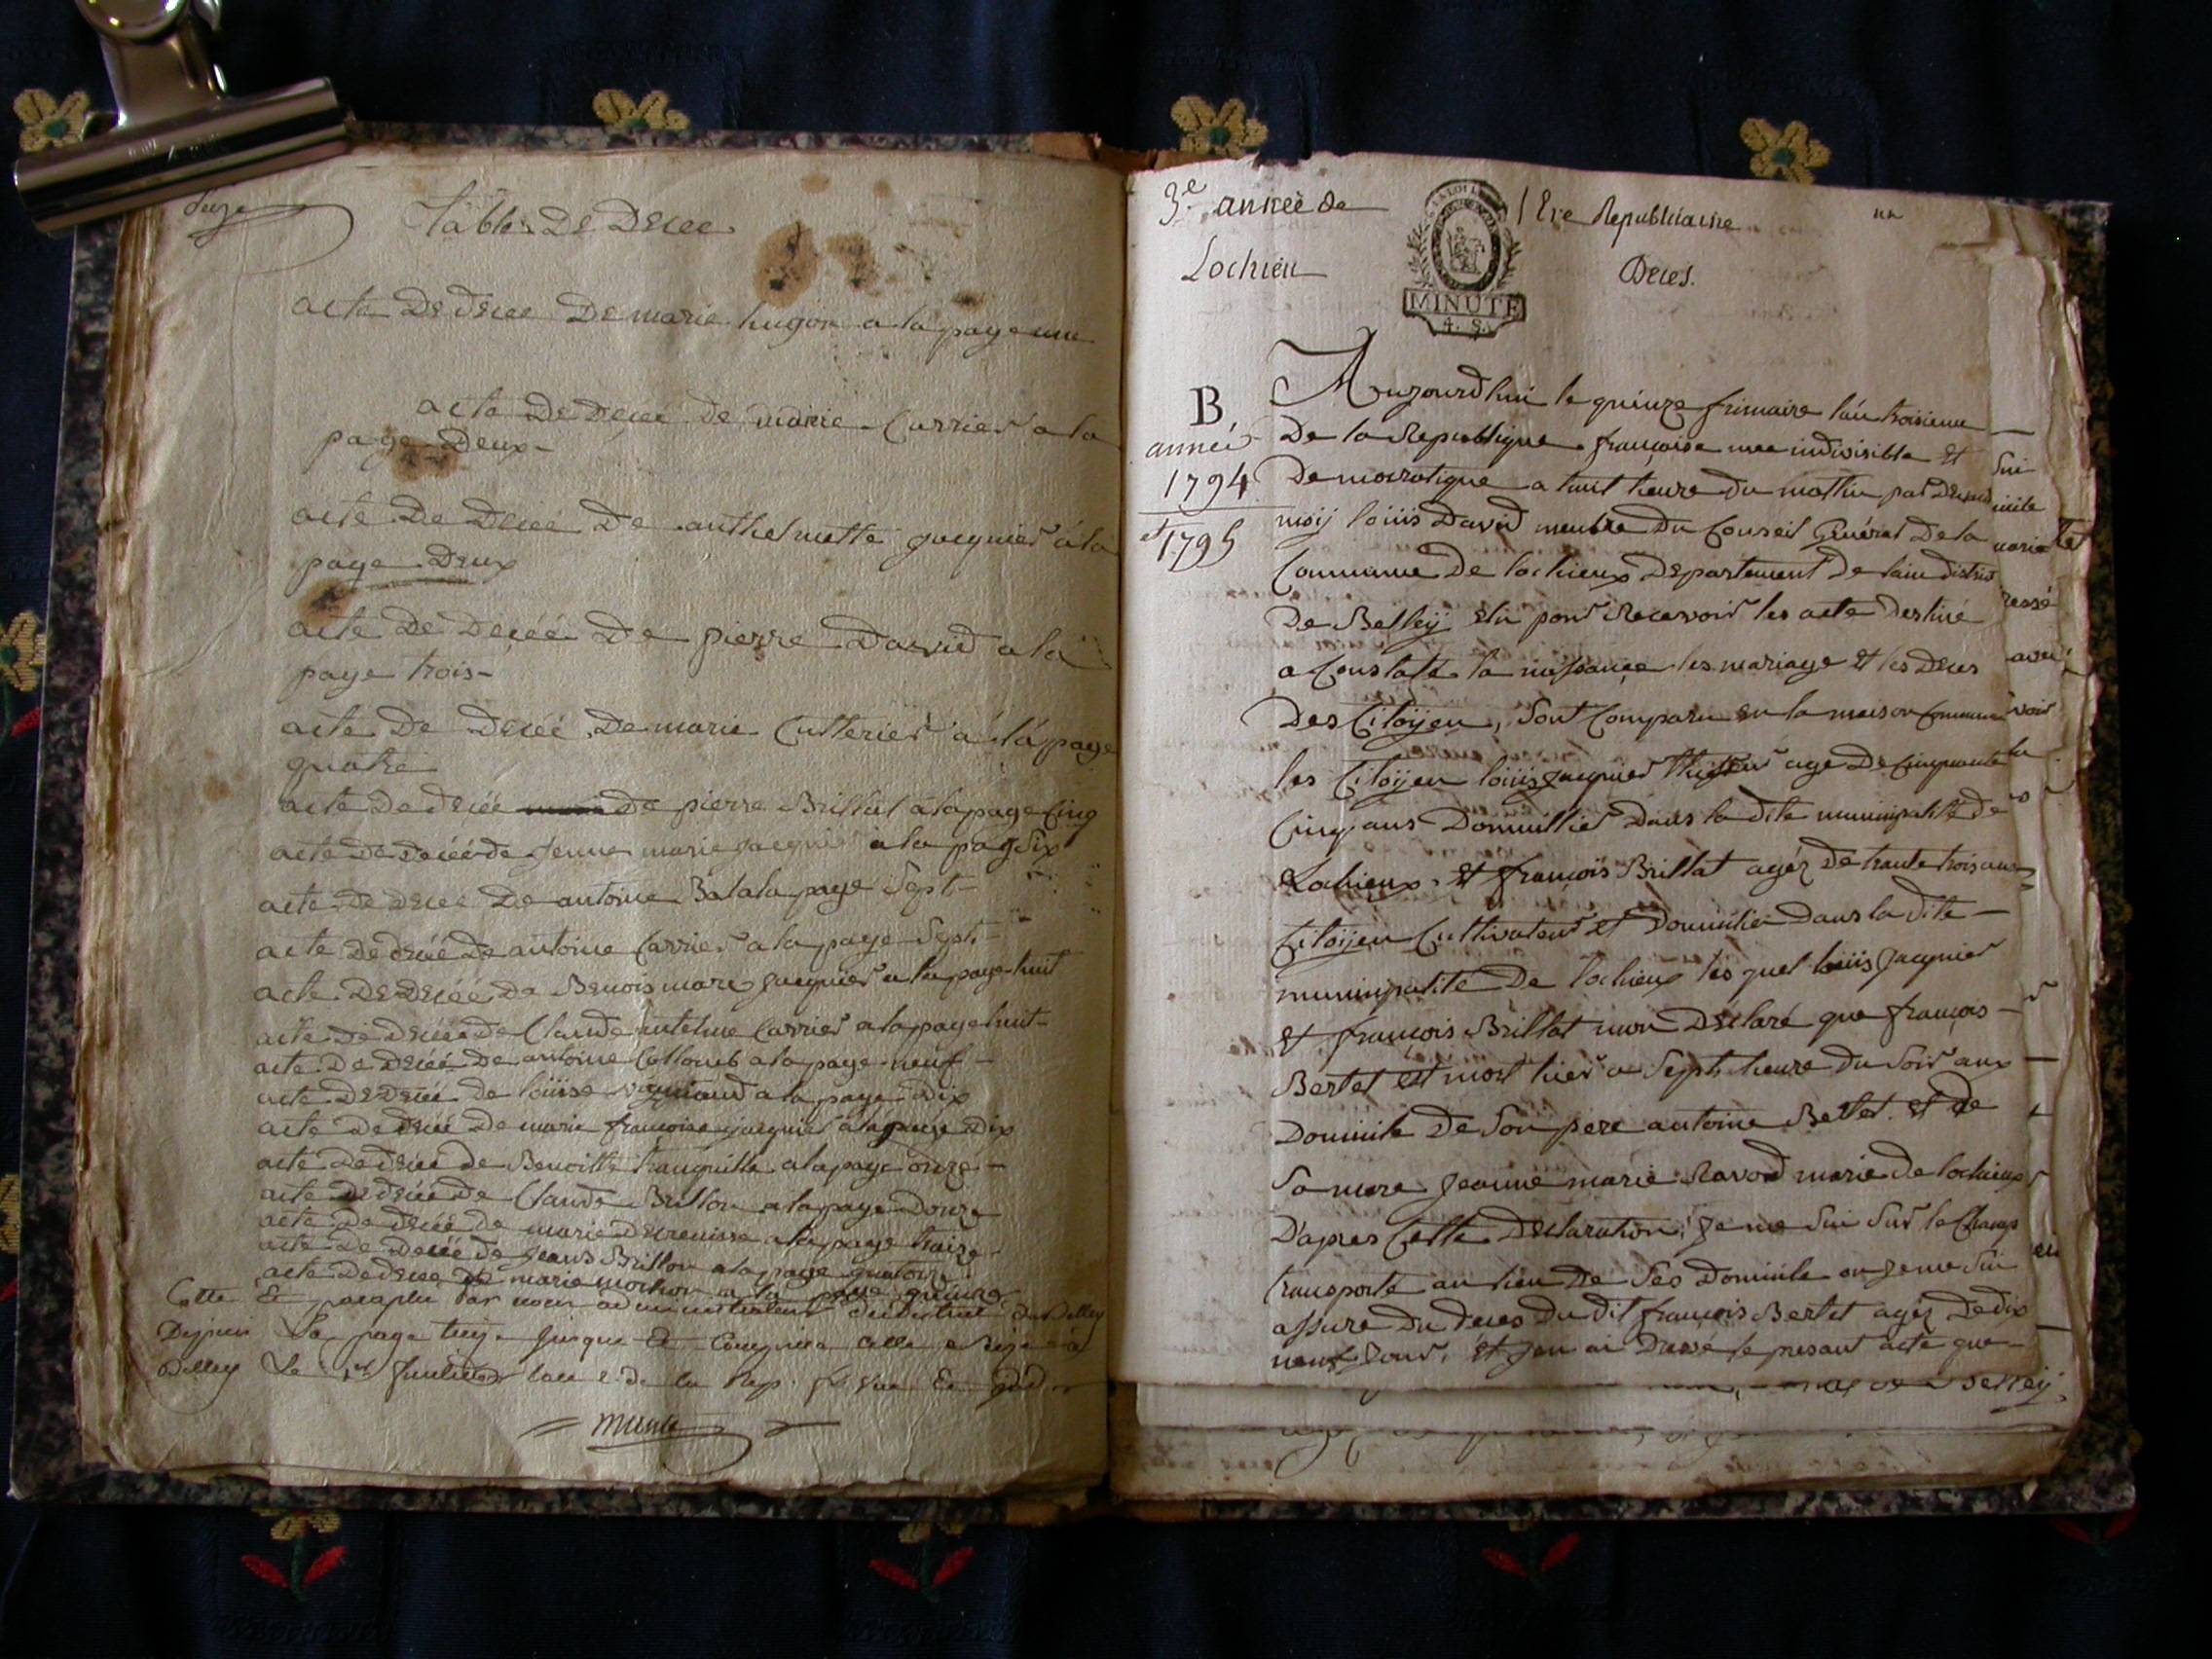 Seize
Table De Decee
acte De decee De marie hugon a la page une
acte De Decee De marie Carrier a la
page Deux -
acte De Decee De anthelmette jacquier à la
page Deux
acte De Deceé De pierre David a la
page trois -
acte De Deceé De marie Cutterier á lá page
quatre
acte De deceé De pierre Brillat a la page Cinq
acte De Deceé de jenne marie jacquier a la pag Six
acte De Decee De antoine Bal a la page Sept -
acte De deceé De antoine Carrier a la page Sept -
acte De Deceé De Benois marc jacquier a la page huit
acte De Deceé De Claude antelme Carrier a la page huit -
acte De Deceé De antoine Collomb a la page neuf -
acte De Deceé de loüise a la page Dix
acte De Deceé De marie francoise jacquier a la page Dix
acte De Deceé de Benoitte tranquille a la page onze -
acte De deceé De Claude Brillon a la page Douze
acte De Deceé de marie Decrenisse a la page traize
acte De Deceé de jeans Brillon a la page quatorze
acte De decee De marie mochon a la page quinze
Cotte Et paraphé par nous administrateur du District De Belley
Depuis La page jusque Et Compris celle Seize à
Belley Le 1er lan 2 de la Rep.
3e. annee de l Ere Republicaine
Lochieu Deces.
MINUTE
4. S.
B
année
1794
et
1795
Aujourdhui le quinze frimaire lan troisieme
De la Republique francoise une indivisible et
Democratique a huit heure du mattin par Devant
moÿ loüis David membre Du Conseil Général De la
Commune De lochieux Departement De lain District
De Belleÿ elu pour Recevoir les acte Destiné
a Constate la naissance les mariage et les Deces
Des Citoÿen, Sont Comparu en la maison Commune
les Citoÿen loüis jacquier age De Cinquante
Cinq ans Domicillier Dans la dite municipalité de
Lochieux et françois Brillat agéz De trante trois ans
Citoÿen Cultivateur et Domicilier Dans la dite -
municipalité De lochieux les quel loüis jacquier
et françois Brillat mon Déclaré que françois -
Bertet est mort hier a Sept heure du Soir aux
Domicile De Son pere antoine Bertet et de
Sa mere jeanne marie Ravod marié de lochieux
D'apres Cette Declaration, je me Sui Sur le Champ
transporté au lieu De Ses Domicile ou je me Sui
assure Du deces Du dit françois Bertet agéz De dix
neuf jour, et jen ai Dressé le presant acte que -